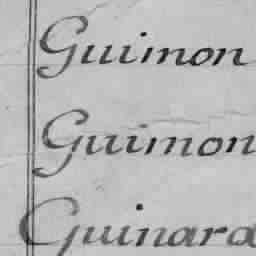 Guimon
Guimon
Guinard